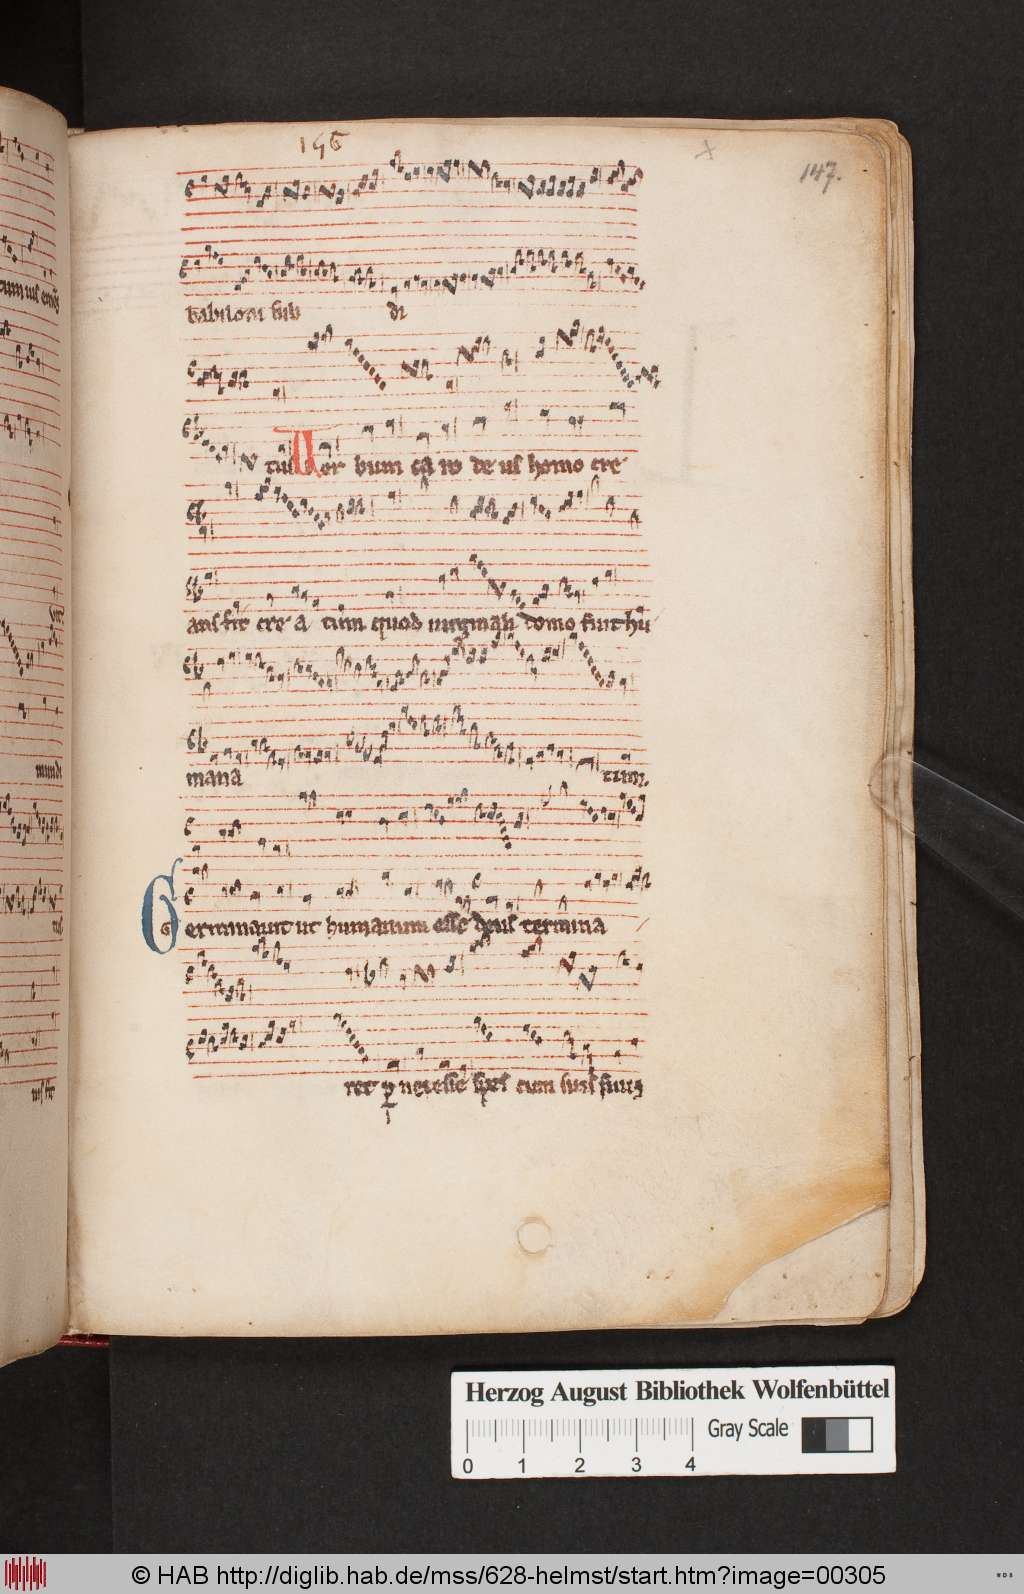 156
147.
babiloni sub di
tus Ver bum ca ro de us homo cre
ans fit cre a tum quod uirginali domo fuit hu
mana tum.
G erminauit ut humanum esse deus termina
ret cum suis
mundi
Herzog August Bibliothek Wolfenbüttel
Gray Scale
0 1 2 3 4
© HAB http://diglib.hab.de/mss/628-helmst/start.htm?image=00305